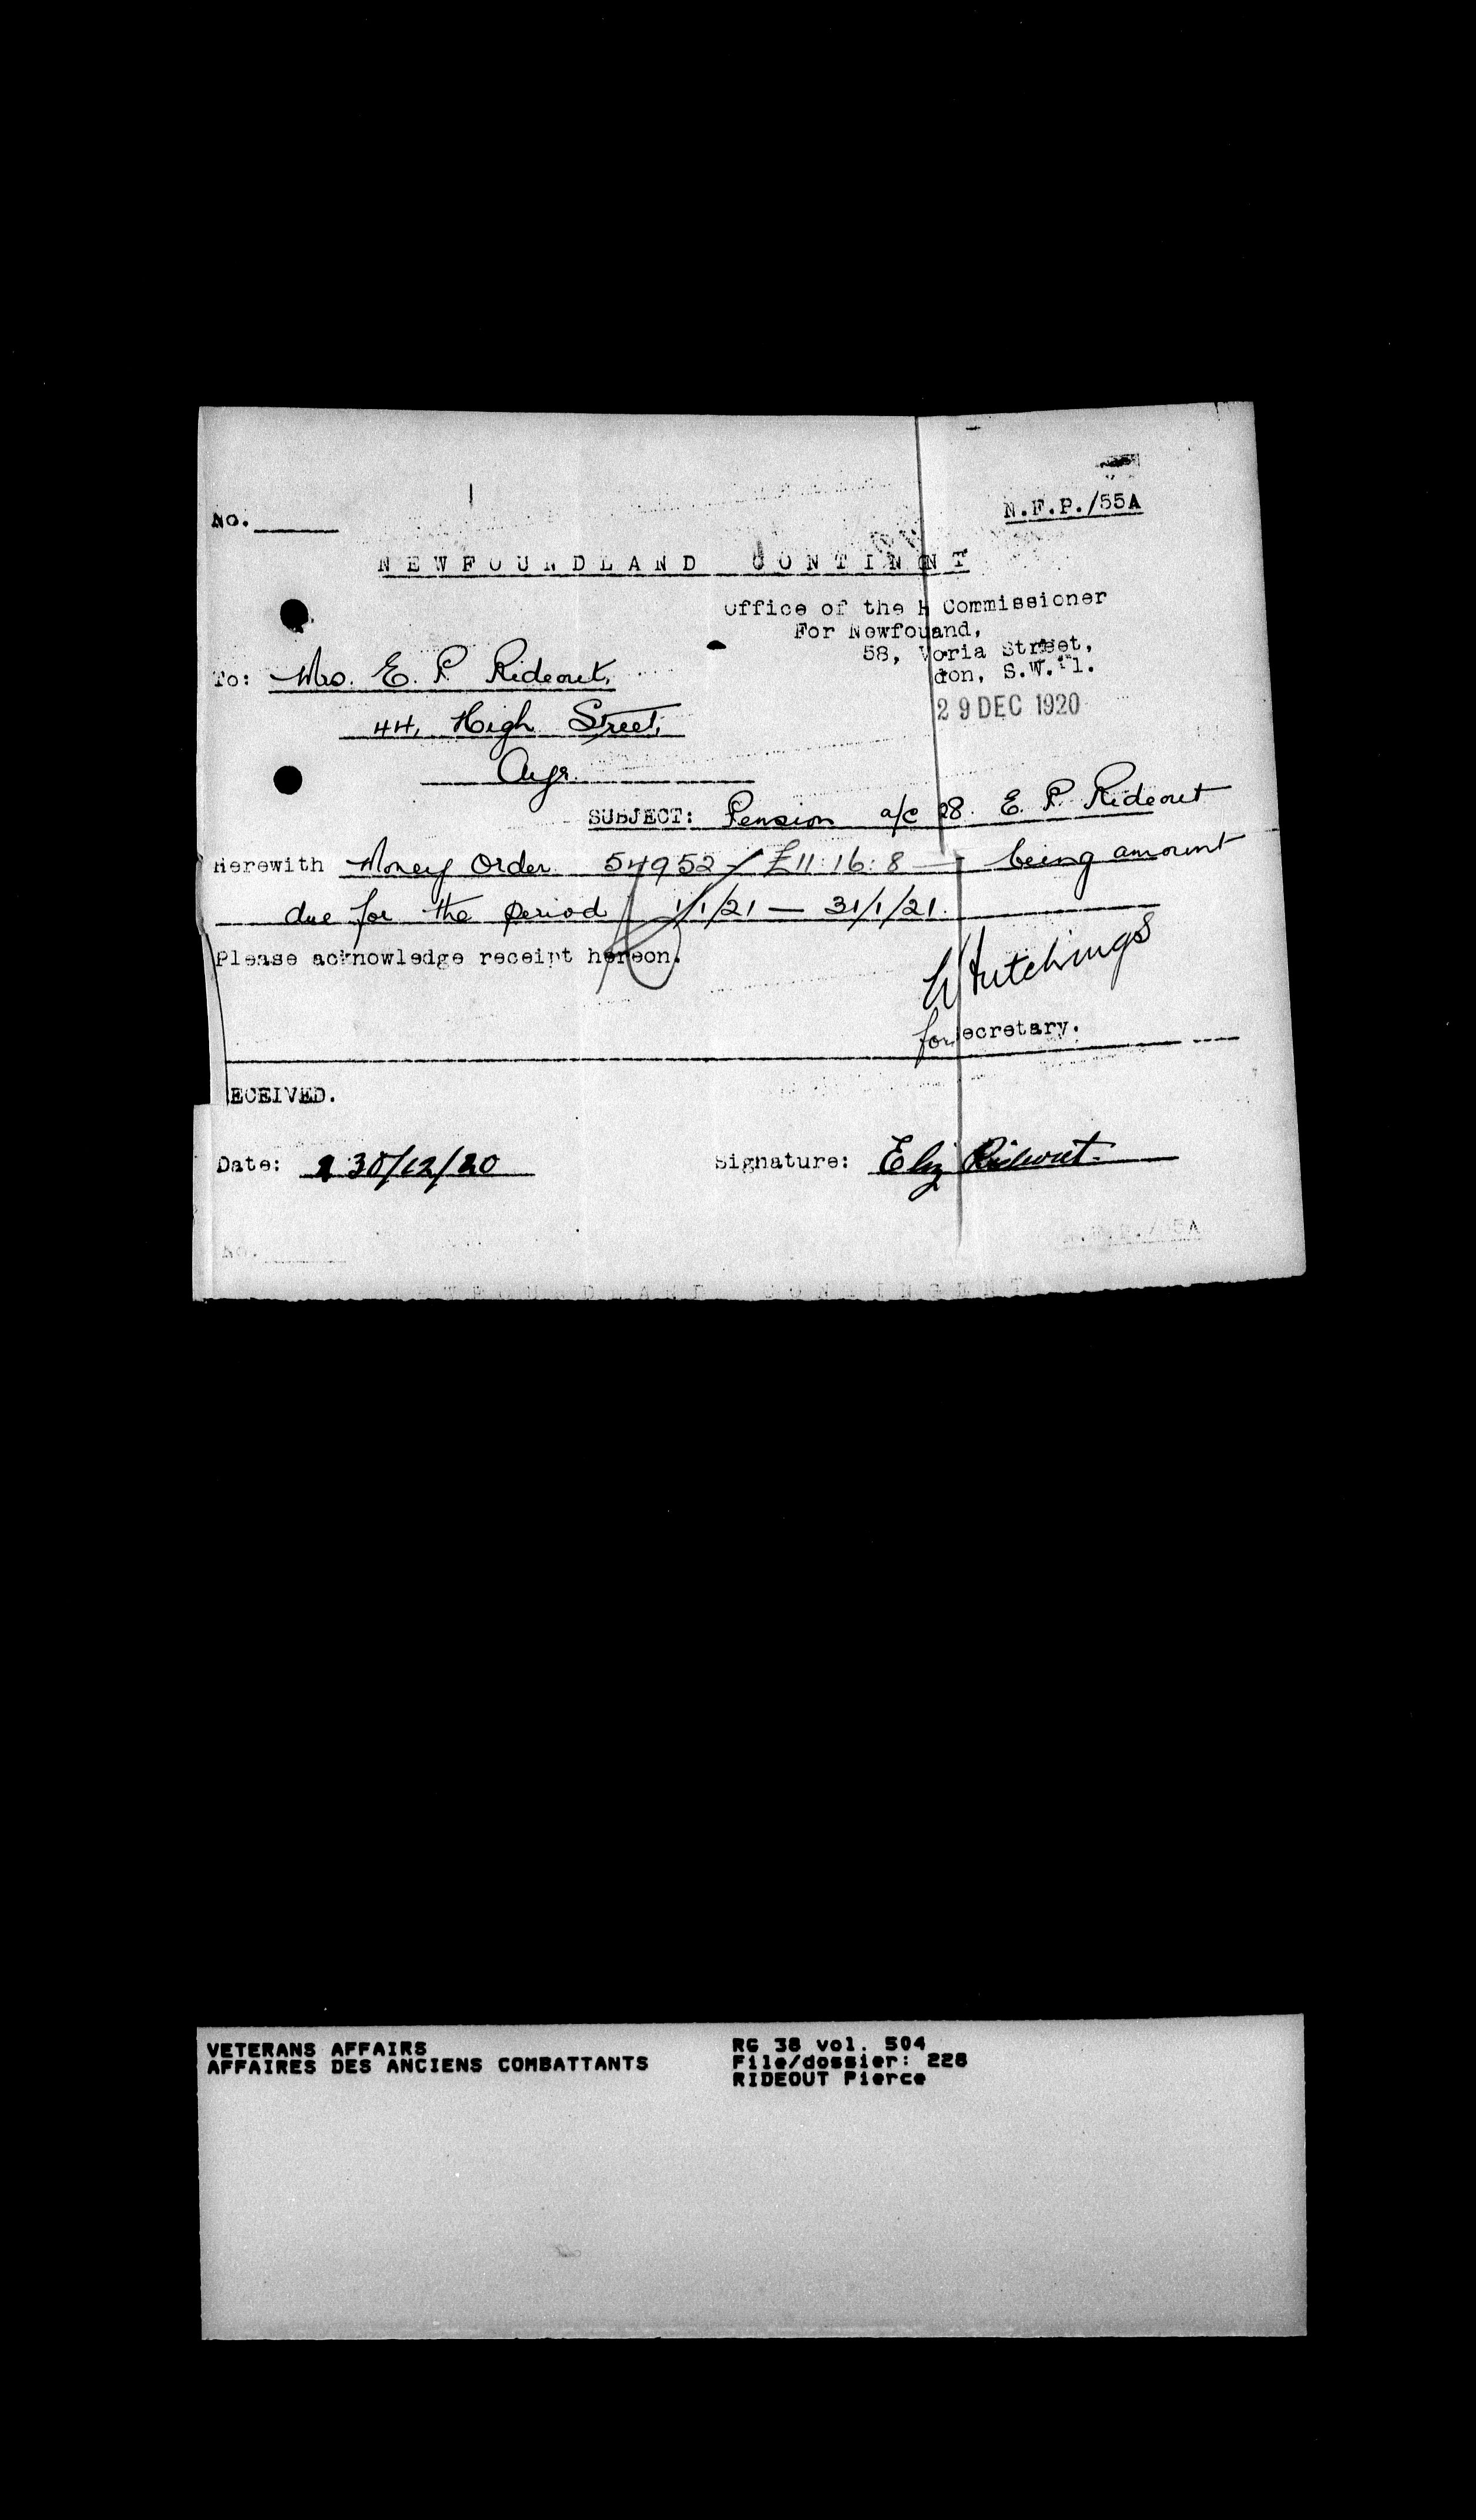 No.
N.F.P./55A
NEWFOUNDLAND CONTINNT
Office of the H Commissioner
For Newfouand,
58, Voria Street,
don, S.W. 1.
29 DEC 1920
To: Mrs. E. P. Rideout,
44, High Street,
Ayr.
SUBJECT: Pension a/c 28. E. P. Rideout
Herewith Money Order 54952 £11:16:8 — being amount
due for the period 1/1/21 — 31/1/21.
Please acknowledge receipt hereon.
Hutchings
for ecretary.
ECEIVED.
Date: 30/12/20 Signature: Eliz Rideout
No. N.F.P./55A
NEWFOUNDLAND CONTINGENT
VETERANS AFFAIRS
AFFAIRES DES ANCIENS COMBATTANTS
RG 38 vol. 504
File/dossier: 228
RIDEOUT Pierce